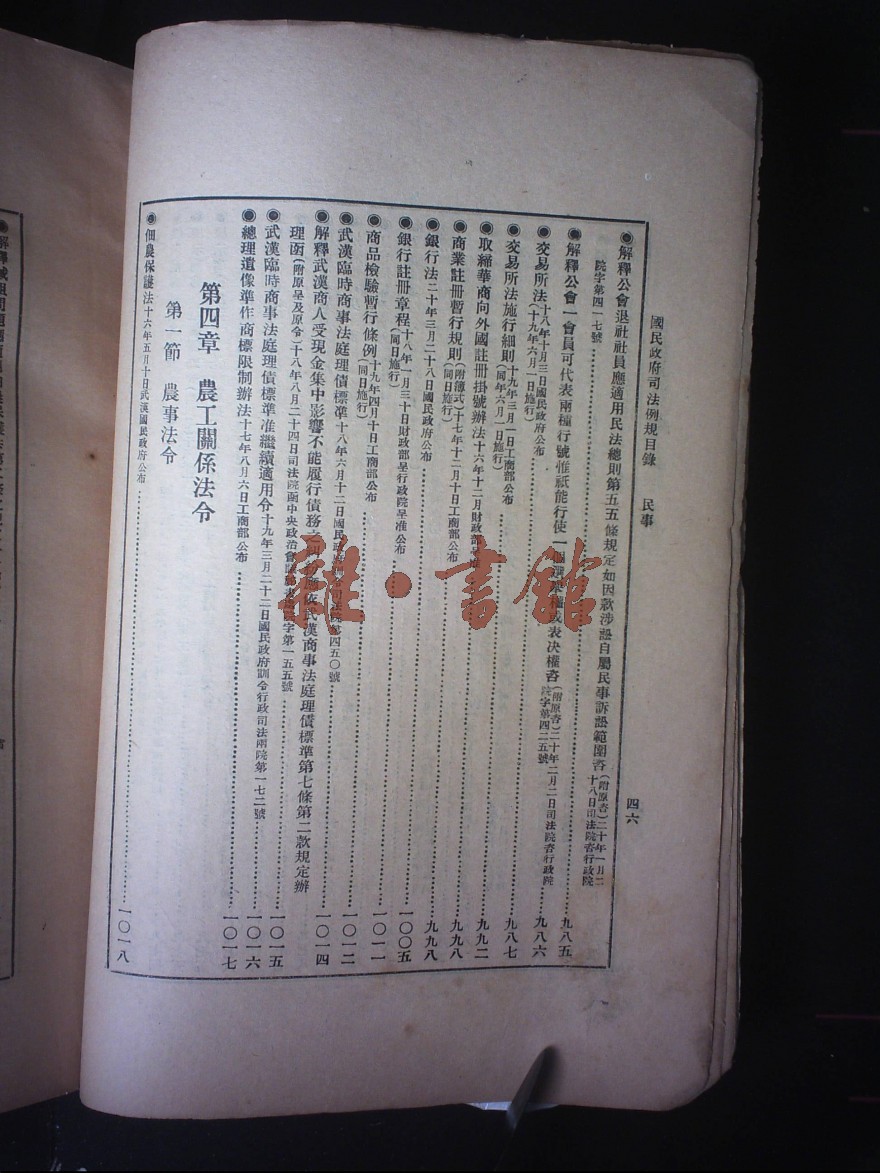 國民政府司法例規目錄 民事 四六
◉解釋公會退社社員應適用民法總則第五五條規定如因款涉訟自屬民事訴訟範圍咨(附原咨)二十年一月二十八日司法院咨行政院
院字第四一七號 九八五
◉解釋公會一會員可代表兩種行號惟祇能行使一個選舉權或表决權咨(附原咨)二十年二月二日司法院咨行政院院字第四二五號 九八六
◉交易所法十八年十月三日國民政府公布(十九年六月一日施行) 九八六
◉交易所法施行細則十九年三月一日工商部公布(同年六月一日施行) 九八七
◉取締華商向外國註冊掛號辦法十六年十二月財政部 九九二
◉商業註冊暫行規則(附簿式)十七年十二月十日工商部公布(同日施行) 九九八
◉銀行法二十年三月二十八日國民政府公布 九九八
◉銀行註冊章程十八年一月三十日財政部呈行政院呈准公布(同日施行) 一〇〇五
◉商品檢驗暫行條例十九年四月十日工商部公布(同日施行) 一〇一一
◉武漢臨時商事法庭理債標準十八年六月十二日國民政府 司法院第四五〇號 一〇一二
◉解釋武漢商人受現金集中影響不能履行債務之 應依武漢商事法庭理債標準第七條第二款規定辦
理函(附原呈及原令)十八年八月二十四日司法院函中央政治會議 字第一五五號 一〇一四
◉武漢臨時商事法庭理債標準准繼續適用令十九年三月二十二日國民政府訓令行政司法兩院第一七二號 一〇一五
◉總理遺像準作商標限制辦法十七年八月六日工商部公布 一〇一七
第四章 農工關係法令
第一節 農事法令
◉佃農保護法十六年五月十日武漢國民政府公布 一〇一八
雜·書館